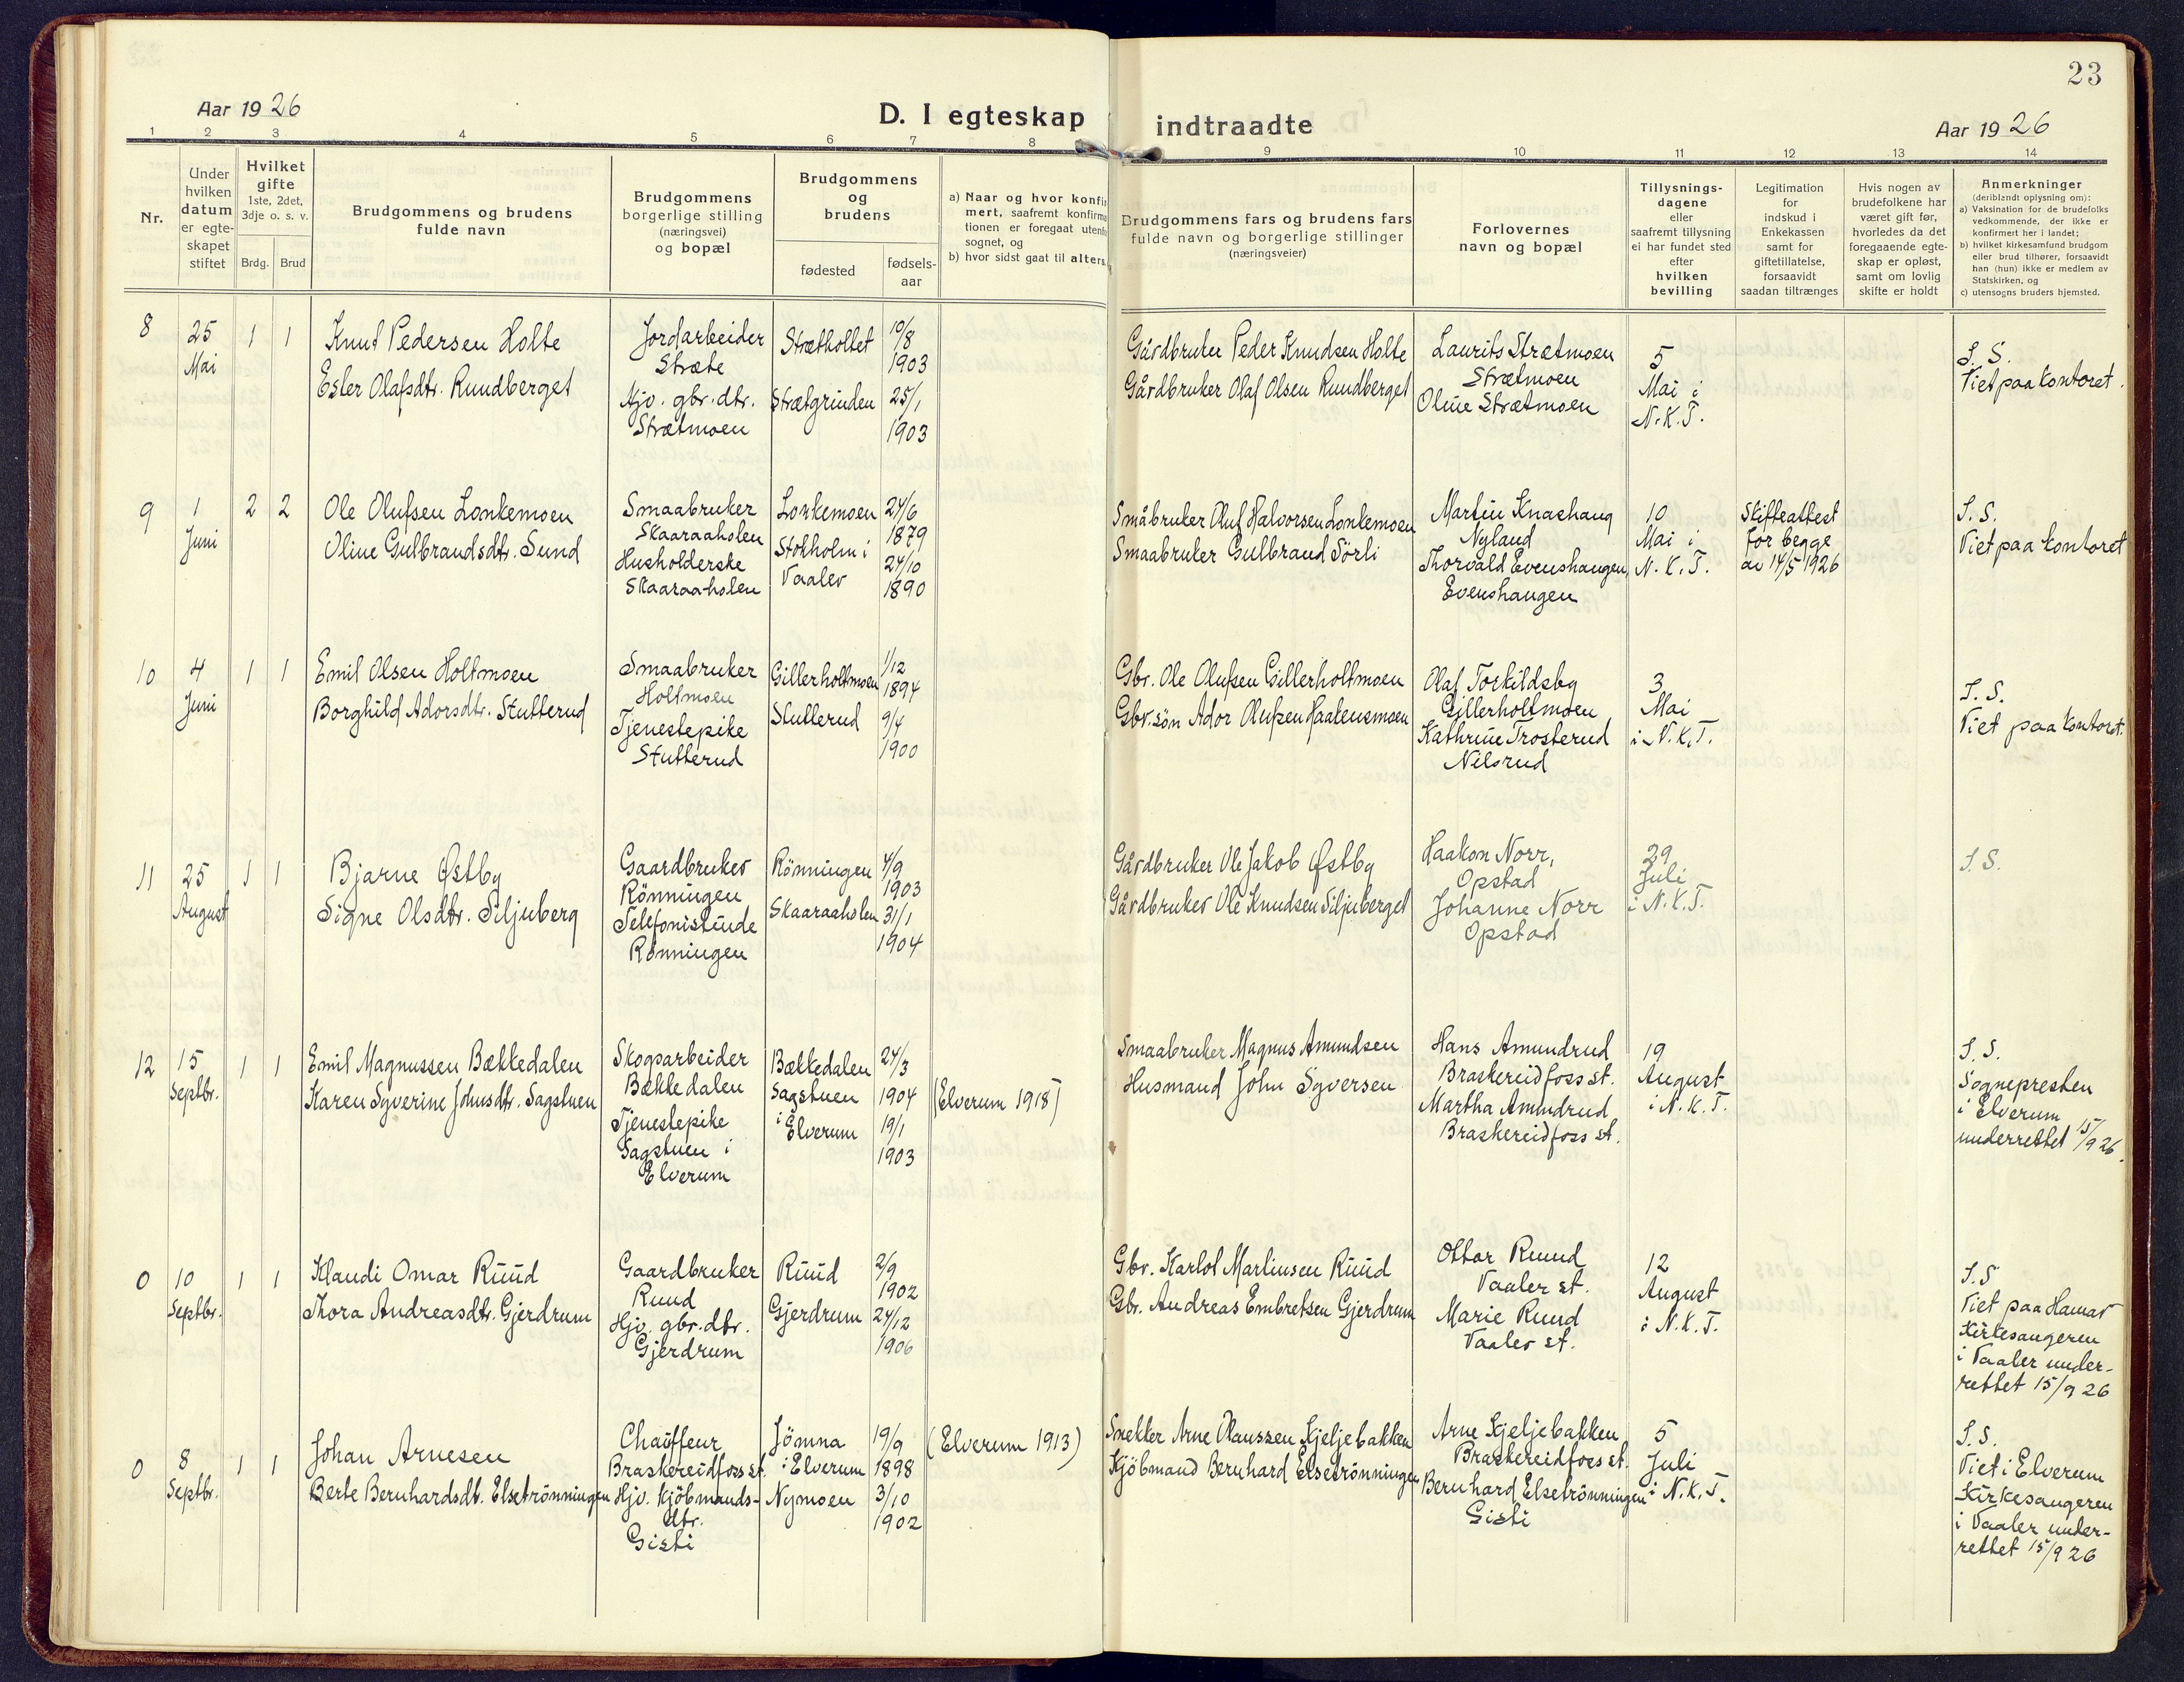 23
Aar 1926
D. I egteskap indtraadte
Aar 1926
1 2 3 4 5 6 7 8 9 10 11 12 13 14
Nr.
Under hvilken datum er egte-skapet stiftet
Hvilket gifte 1ste, 2det, 3dje o. s. v.
Brdg. Brud
Brudgommens og brudens fulde navn
Brudgommens borgerlige stilling (næringsvei) og bopæl
Brudgommens og brudens
fødested
fødsels-aar
a) Naar og hvor konfir
mert, saafremt konfirma
tionen er foregaat utenfo
sognet, og
b) hvor sidst gaat til alters.
Brudgommens fars og brudens fars
fulde navn og borgerlige stillinger
(næringsveier)
Forlovernes
navn og bopæl
Tillysnings-
dagene
eller
saafremt tillysning
ei har fundet sted
efter
hvilken
bevilling
Legitimation
for
indskud i
Enkekassen
samt for
giftetillatelse,
forsaavidt
saadan tiltrænges
Hvis nogen av
brudefolkene har
været gift før,
hvorledes da det
foregaaende egte-
skap er opløst,
samt om lovlig
skifte er holdt
Anmerkninger
(deriblandt oplysning om):
a) Vaksination for de brudefolks
vedkommende, der ikke er
konfirmert her i landet;
b) hvilket kirkesamfund brudgom
eller brud tilhører, forsaavidt
han (hun) ikke er medlem av
Statskirken, og
c) utensogns bruders hjemsted.
8
25
Mai
1 1
Knut Pedersen Holte
Ester Olafsdtr. Rundberget
Jordarbeider
Stræte
Hjv. gbr. dtr.
Strætmoen
Strætholtet
Strætgrinden
10/8
1903
25/1
1903
Gårdbruker Peder Knudsen Holte
Gårdbruker Olaf Olsen Rundberget
Laurits Strætmoen
Strætmoen
Oline Strætmoen
5
Mai i
N.K.T.
S. S.
Viet paa kontoret.
9
1
Juni
2 2
Ole Olufsen Lonkemoen
Oline Gulbrandsdtr. Sund
Smaabruker
Skaaraaholen
Husholderske
Skaaraaholen
Lonkemoen
Stokholm i
Vaaler
24/6
1879
24/10
1890
Småbruker Oluf Halvorsen Lonkemoen
Smaabruker Gulbrand Sörli
Martin Knashaug
Nyland
Thorvald Evenshaugen,
Evenshaugen
10
Mai i
N.K.T.
Skifteattest
for begge
av 14/5 1926
S. S.
Viet paa kontoret
10
4
Juni
1 1
Emil Olsen Holtmoen
Borghild Adorsdtr. Stutterud
Smaabruker
Holtmoen
Tjenestepike
Stutterud
Gillerholtmoen
Stutterud
1/12
1894
9/4
1900
Gbr. Ole Olufsen Gillerholtmoen
Gbr.sön Ador Olufsen Haatensmoen
Olaf Torkildsby
Gillerholtmoen
Kathrine Trosterud
Nilsrud
3
Mai
i N.K.T.
S. S.
Viet paa kontoret.
11
25
August
1 1
Bjarne Østby
Signe Olsdtr. Siljuberg
Gaardbruker
Rönningen
Telefonistinde
Rönningen
Rönningen
Skaaraaholen
4/9
1903
31/1
1904
Gårdbruker Ole Jakob Østby
Gårdbruker Ole Knudsen Siljuberget
Haakon Norr,
Opstad
Johanne Norr
Opstad
29
Juli
i N.K.T.
S. S.
12
15
Septbr.
1 1
Emil Magnussen Bækkedalen
Karen Syverine Johnsdtr. Sagstuen
Skogsarbeider
Bækkedalen
Tjenestepike
Sagstuen i
Elverum
Bækkedalen
Sagstuen
i Elverum
24/3
1904
19/1
1903
(Elverum 1918)
Smaabruker Magnus Amundsen
Husmand John Syversen
Hans Amundrud
Braskereidfoss st.
Martha Amundrud
Braskereidfoss st.
19
August
i N.K.T.
S. S.
Sognepresten
i Elverum
underrettet 15/9 26.
0
10
Septbr.
1 1
Klaudi Omar Ruud
Thora Andreasdtr. Gjerdrum
Gaardbruker
Ruud
Hjv. gbr. dtr.
Gjerdrum
Ruud
Gjerdrum
2/9
1902
24/12
1906
Gbr. Karlot Martinsen Ruud
Gbr. Andreas Embretsen Gjerdrum
Ottar Ruud
Vaaler st.
Marie Ruud
Vaaler st.
12
August
i N.K.T.
S. S
Viet paa Hamar
Kirkesangeren
i Vaaler under-
rettet 15/9 26
0
8
Septbr.
1 1
Johan Arnesen
Berte Bernhardsdt. Elsetrönningen
Chauffeur
Braskereidfoss st.
Hjv. Kjöbmands-
dtr.
Gisti
Jömna
i Elverum
Nymoen
19/9
1898
3/10
1902
(Elverum 1913)
Snekker Arne Olaussen Kjeljebakken
Kjöbmand Bernhard Elsetrönningen
Arne Kjeljebakken
Braskereidfoss st.
Bernhard Elsetrönningen
Gisti
5
Juli
i N.K.T.
S. S.
Viet i Elverum
Kirkesangeren
i Vaaler under-
rettet 15/9 26